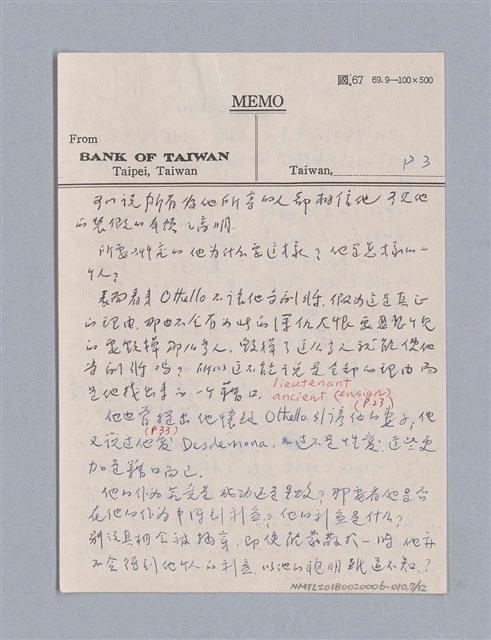 國.67 69.9—100×500
MEMO
From
BANK OF TAIWAN
Taipei, Taiwan
Taiwan,
P 3
可以說所有為他所害的人都相信他 可見他
的裝假的本領之高明.
所要研究的他為什么要這樣? 他是怎樣的一
个人?
表面看來 Othello 不讓他当副將. 假如這是真正
的理由, 那也不会有如此的深仇大恨 要
的要毀掉那么多人. 毀掉了這么多人就能使他
当副將嗎? 所以這不能說是全部的理由 而
是他找出來的一个藉口.
lieutenant
ancient (ensign)
(P.23)
他也曾提出他懷疑 Othello 引誘他的妻子, 他
(P33)
又說過他愛 Desdemona, 這不是性愛, 這些更
加是藉口而已.
他的作為究竟是成功还是失敗? 那要看他是否
在他的作為中得到利益? 他的利益是什么?
別說真相会被揭穿, 即使能蒙蔽於一時 他并
不会得到他个人的利益. 以他的聰明就這不知?
NMTL20180020006-010.7/12